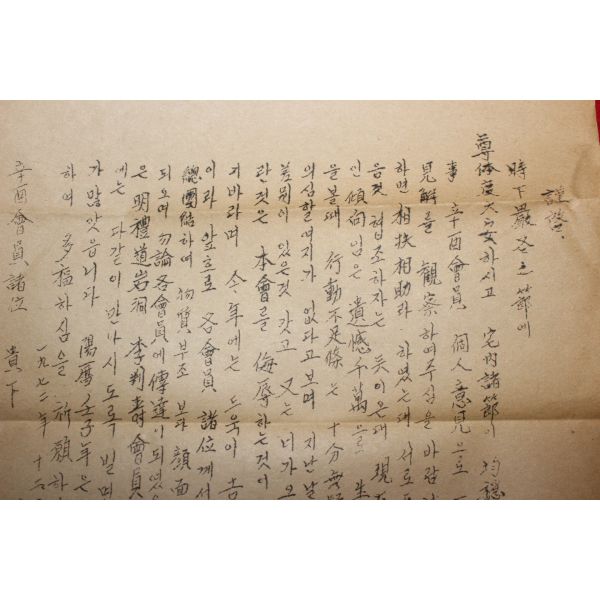 謹啓
時下嚴冬之節에
尊体度大安하시고 宅內諸節이
事 辛酉會員 個人意見으로
見解를 觀察하여주심을 바람
하면 相扶相助라 하였는대 서로
음껏 협조하자는 뜻이온대 現
인 傾向임은 遺憾千萬을
을볼때 行動不足條는 十分無
의심할여지가 없다고보며 지난날
差別이 있은것 갖고 또는 너가오
란것은 本會를 侮辱하는것이
기바라며 今年에는 드욱이
이라 앞으로 各會員 諸位게서
總團結하여 物質부조 보다 顔面
되오며 勿論各會員에傳達이되였
은 明禮道岩洞 李判壽會員
에는 다같이 만나시도록 빌며
가많앗읍니다 陽曆壬子年은
하여 多福하심을 祈願하
一九七二年 十二
辛酉會員諸位 貴下